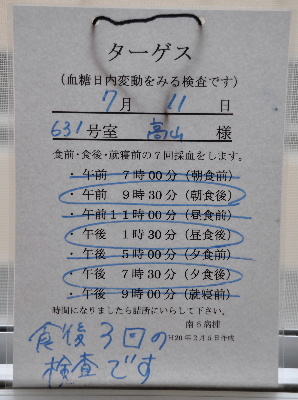 ターゲス
(血糖日内変動をみる検査です)
7月11日
631号室 高山 様
食前・食後・就寝前の7回採血をします。
・午前 7時00分(朝食前)
・午前 9時30分(朝食後)
・午前11時00分(昼食前)
・午後 1時30分(昼食後)
・午後 5時00分(夕食前)
・午後 7時30分(夕食後)
・午後 9時00分(就寝前)
時間になりましたら詰所にいらして下さい。
南6病棟
H20年3月5日作成
食後3回の
検査です